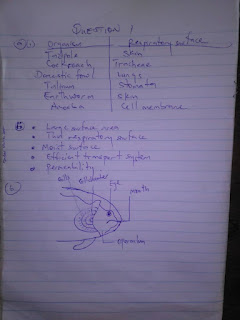 QUESTION 1
(a)(i) Organism Respiratory surface
Tadpole Skin
Cockroach Tracheae
Domestic fowl Lungs
Stomata
Earthworm Skin
Amoeba Cell membrane
Large surface area
Thin respiratory surface
Moist surface
Efficient transport system
Permeability
(b)
gill
eye
mouth
operculum